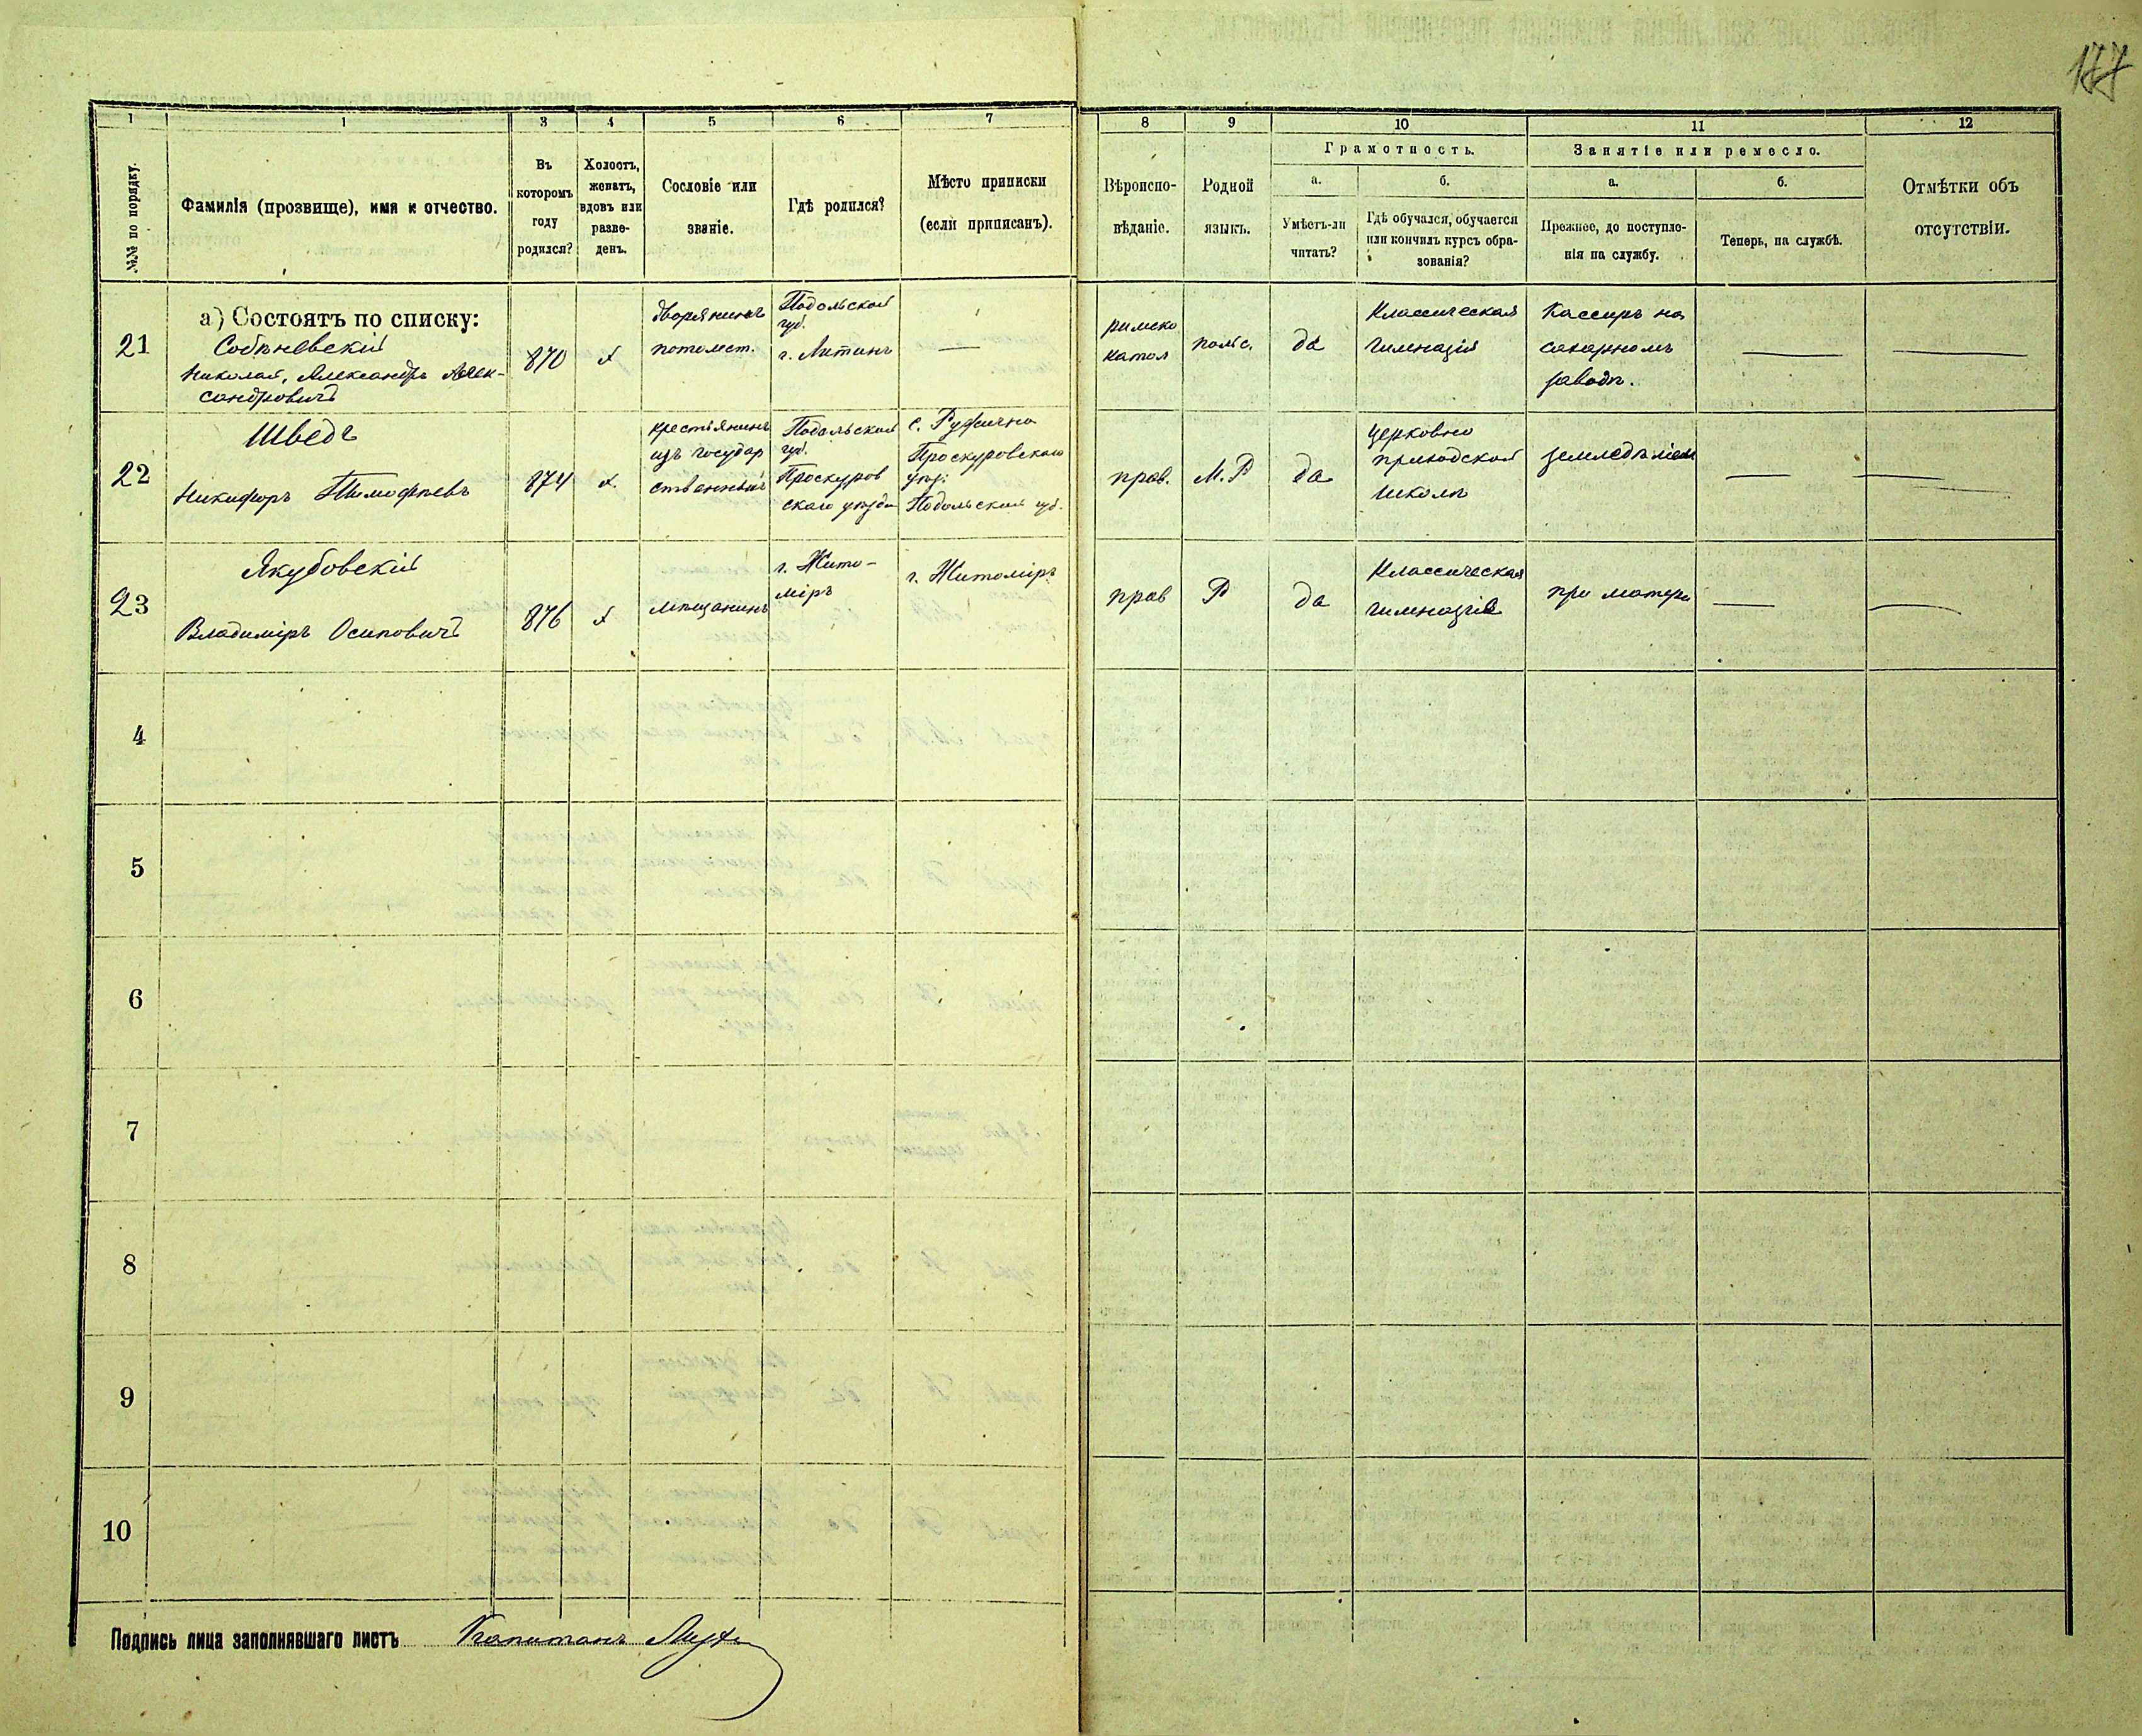 177
1 1 3 4 5 6 7 8 9 10 11 12
№№ по порядку.
Фамилія (прозвище), имя и отчество.
Въ
которомъ
году
родился?
Холостъ,
женатъ,
вдовъ или
разве-
денъ.
Сословіе или
званіе.
Гдѣ родился?
Мѣсто приписки
(если приписанъ).
Вѣроиспо-
вѣданіе.
Родной
языкъ.
Грамотность.
а.
Умѣетъ-ли
читать?
б.
Гдѣ обучался, обучается
или кончилъ курсъ обра-
зованія?
Занятіе или ремесло.
а.
Прежнее, до поступле-
нія на службу.
б.
Теперь, на службѣ.
Отмѣтки объ
отсутствіи.
21
а) Состоятъ по списку:
Николай, Александръ Алек-
сандровичъ
870
х
дворянинъ
потомст.
Подольской
губ.
г. Литинъ
—
римско
катол
польс.
да
Классическая
гимназія
Кассиръ на
сахарномъ
заводѣ.
—
22
Шведъ
Никифоръ Тимофѣевъ
874
х.
крестьянинъ
изъ государ
ственныхъ
Подольской
губ.
Проскуров
скаго уѣзда
с.
Проскуровскаго
уѣз.
Подольской губ.
прав.
М. Р
да
церковно
приходской
школѣ
земледѣліем
—
—
23
Якубовскій
Владиміръ Осиповичъ
876
х
мѣщанинъ
г. Жито-
міръ
г. Житоміръ
прав
Р
да
Классическая
гимназія
при матери
—
—
4
5
6
7
8
9
10
Подпись лица заполнявшаго листъ Капитанъ